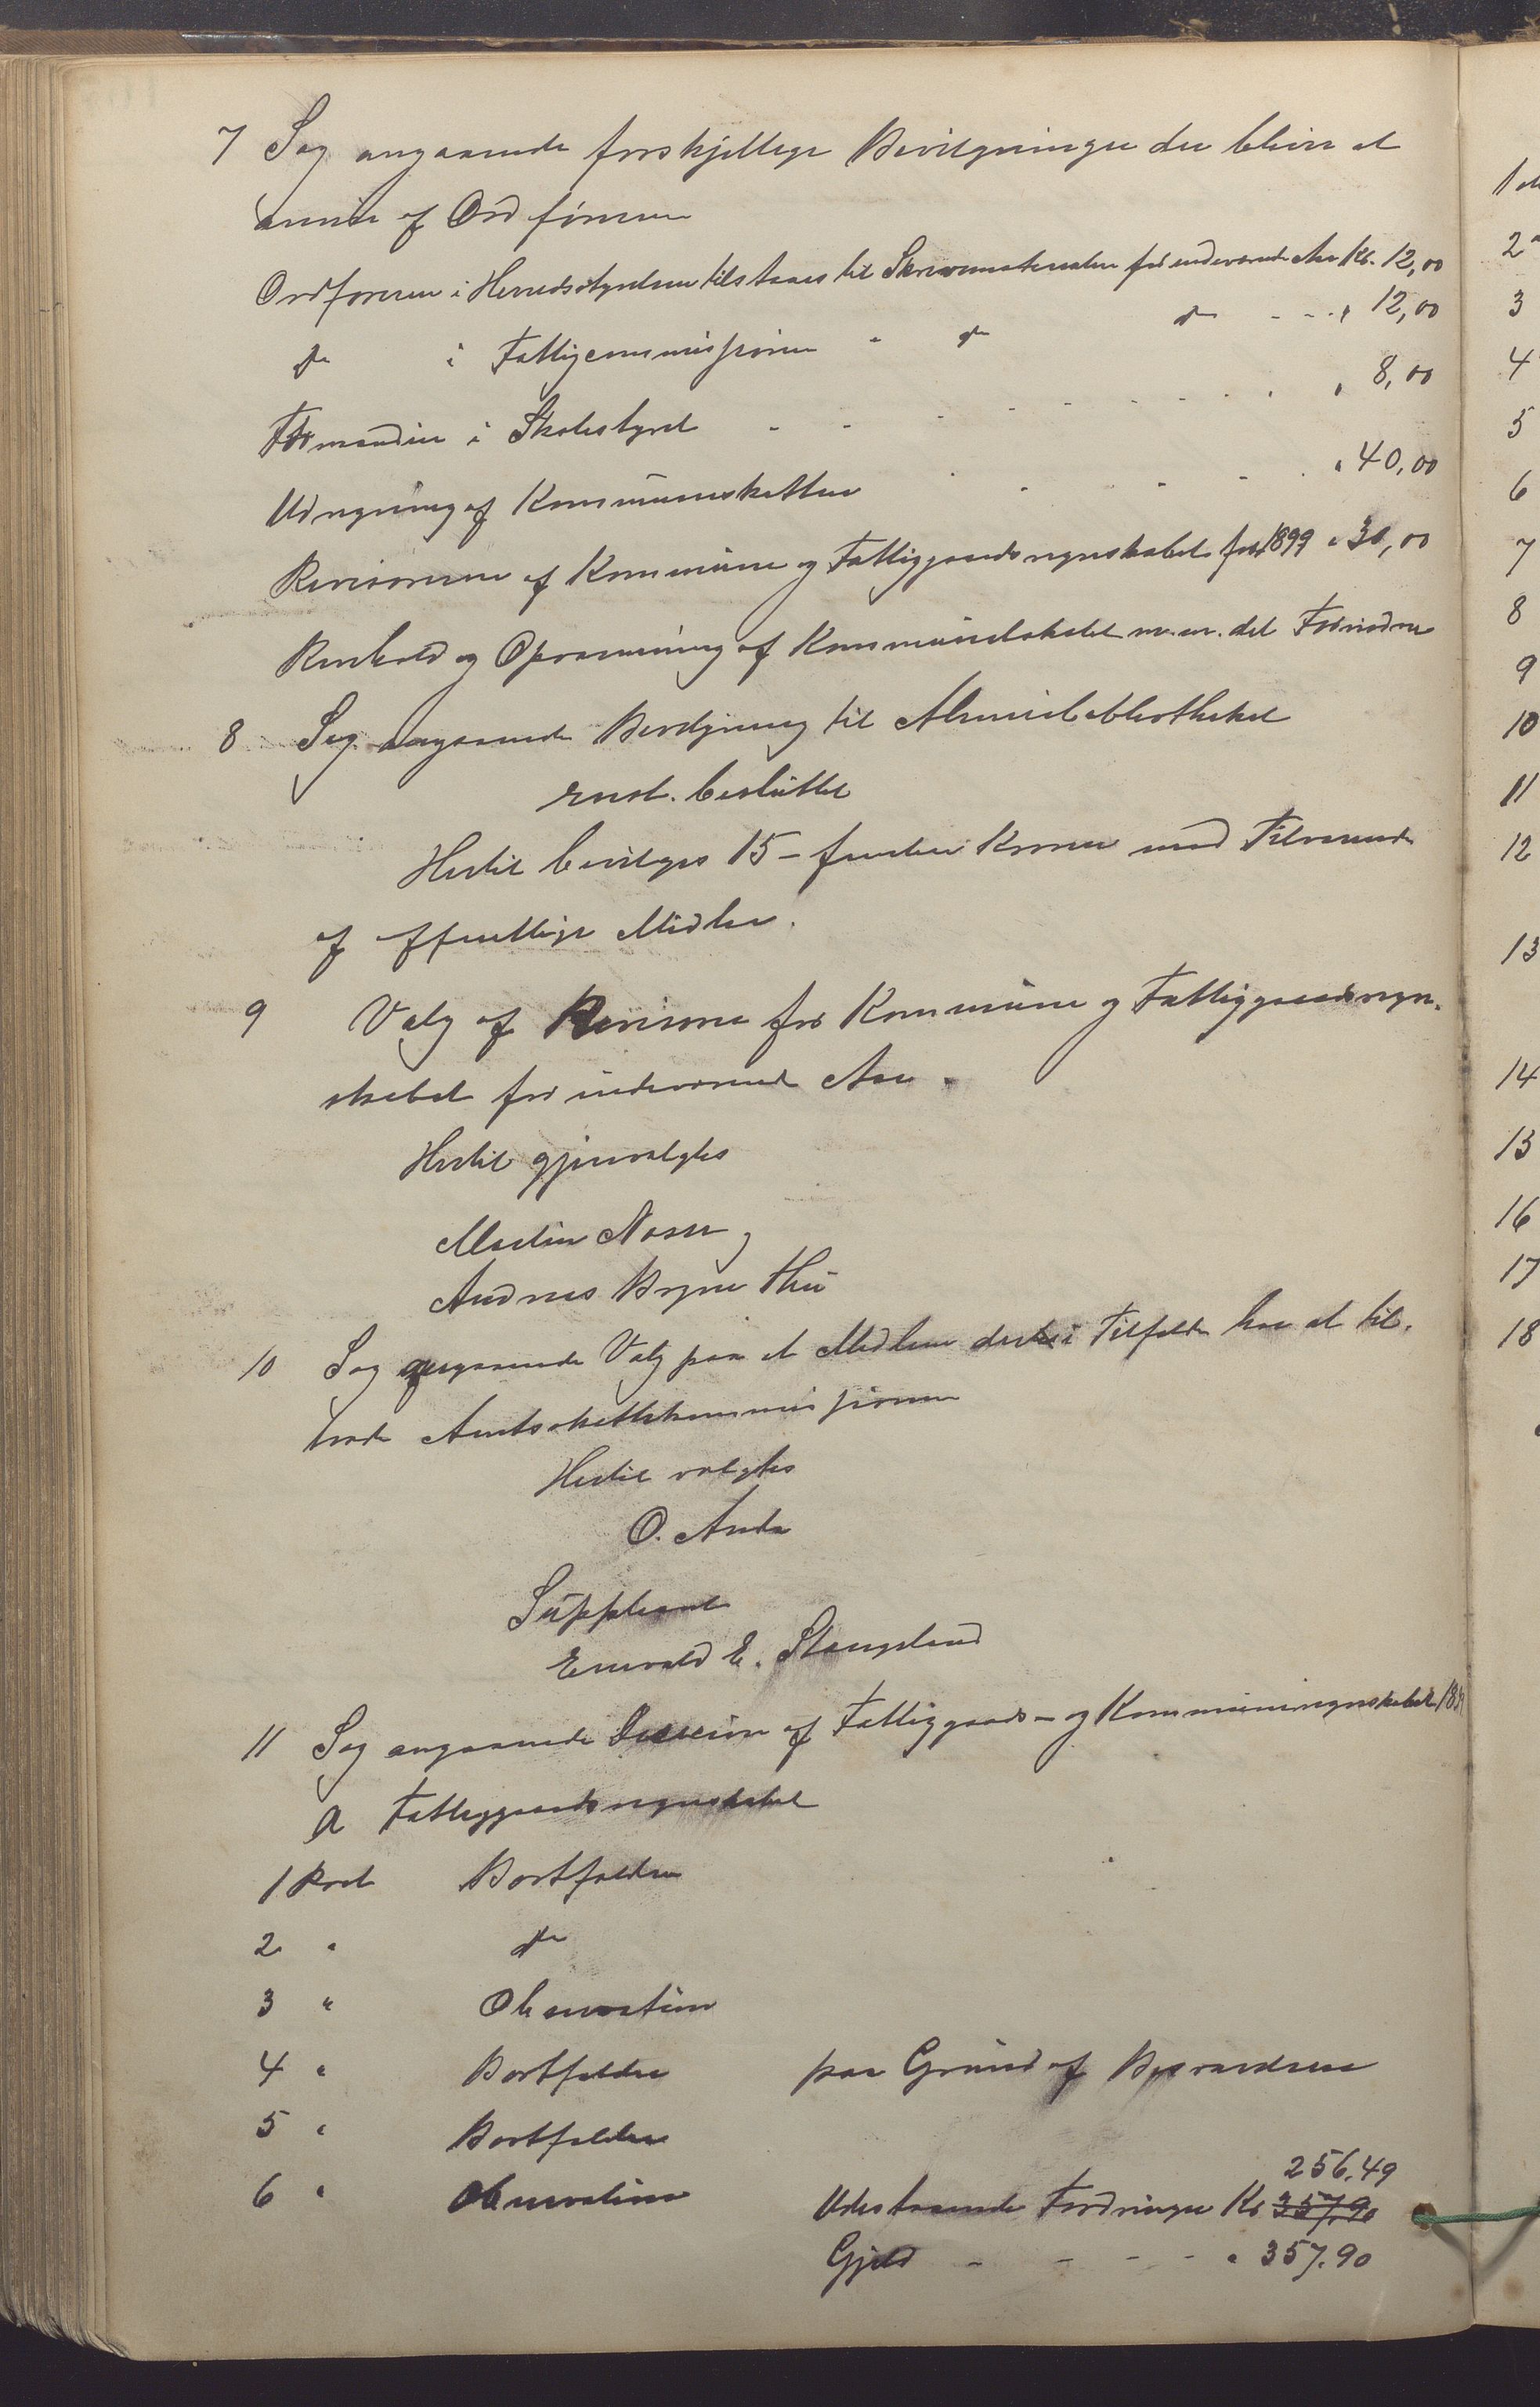 7 Sag angaaende forskjellige Bevilgninger der bliver at
anvise af Ordføreren
Ordføreren i Herredsstyrelsen tilstaaes til Skrivematerialier for indeværende Aar Kr. 12,00
do i Fattigcommissionen " do do - - - " 12,00
Formanden i Skolestyret - - - - - - - - - " 8,00
Udregning af Kommuneskatten - - - - - " 40,00
Revisorerne af Kommune og Fattiggaardsregnskabet for 1899 " 30,00
Renhold og Opvarming af Kommunelokalet m.m. det Fornødne
8 Sag angaaende Bevilgning til Almuebibliotheket
enst. besluttet
Hertil bevilges 15 - femten Kroner mod Tilsvarende
af offentlige Midler.
9 Valg af Revisorer for Kommune og Fattiggaardsregn-
skabet for indeværende Aar.
Hertil gjenvalgtes
Martin Næsse og
Andreas Bryne Thu
10 Sag angaaende Valg paa et Medlem der i Tilfælde har at til-
træde Amtsskattekommissionen
Hertil valgtes
O. Anda
Suppleant
Enevald E. Stangeland
11 Sag angaaende Decision af Fattiggaards- og Kommuneregnskabet 189
a Fattiggaardsregnskabet
1 Post Bortfalder
2 " do
3 " Observation
4 " Bortfalder paa Grund af Besvarelsen
5 " Bortfalder
256.49
6 " Observation Udestaaende Fordringer Kr 357.90
Gjeld - - - - " 357.90
1
2
3
4
5
6
7
8
9
10
11
12
13
14
15
16
17
18